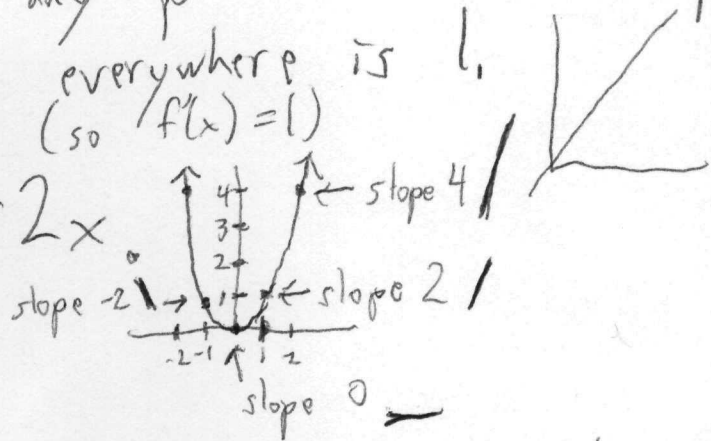 everywhere is 1.
(so f'(x) = 1)
2x
4
slope 4
3
2
slope -2
1
slope 2
-2 -1 1 2
slope 0